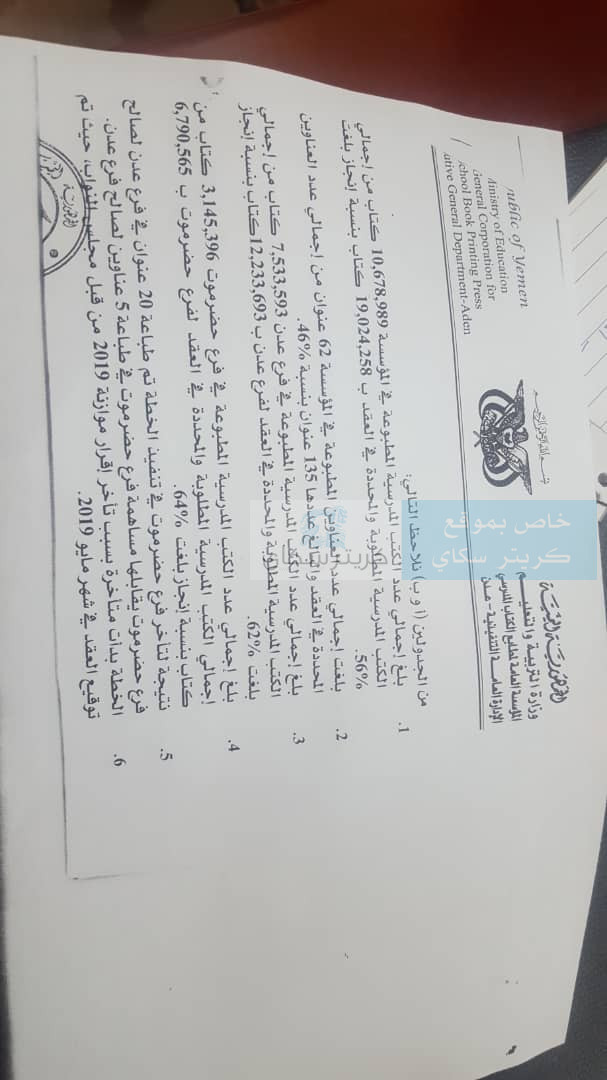 الجمهورية اليمنية
وزارة التربية والتعليم
المؤسسة العامة لمطابع الكتاب المدرسي
الإدارة العامة التنفيذية - عدن
بسم الله الرحمن الرحيم
ublic of Yemen
Ministry of Education
General Corporation for
chool Book Printing Press
ative General Department-Aden
من الجدولين (أ و ب) نلاحظ التالي:
1. بلغ إجمالي عدد الكتب المدرسية المطبوعة في المؤسسة 10,678,989 كتاب من إجمالي
الكتب المدرسية المطلوبة والمحددة في العقد ب 19,024,258 كتاب بنسبة إنجاز بلغت
56%.
2. بلغت إجمالي عدد العناوين المطبوعة في المؤسسة 62 عنوان من إجمالي عدد العناوين
المحددة في العقد والبالغ عددها 135 عنوان بنسبة 46%.
3. بلغ إجمالي عدد الكتب المدرسية المطبوعة في فرع عدن 7,533,593 كتاب من إجمالي
الكتب المدرسية المطلوبة والمحددة في العقد لفرع عدن ب 12,233,693 كتاب بنسبة إنجاز
بلغت 62%.
4. بلغ إجمالي عدد الكتب المدرسية المطبوعة في فرع حضرموت 3,145,396 كتاب من
إجمالي الكتب المدرسية المطلوبة والمحددة في العقد لفرع حضرموت ب 6,790,565
كتاب بنسبة إنجاز بلغت 64%.
5. نتيجة لتأخر فرع حضرموت في تنفيذ الخطة تم طباعة 20 عنوان في فرع عدن لصالح
فرع حضرموت يقابلها مساهمة فرع حضرموت في طباعة 5 عناوين لصالح فرع عدن.
6. الخطة بدأت متأخرة بسبب تأخر إقرار موازنة 2019 من قبل مجلس النواب، حيث تم
توقيع العقد في شهر مايو 2019.
خاص بموقع
كريتر سكاي
كريتر سكاي